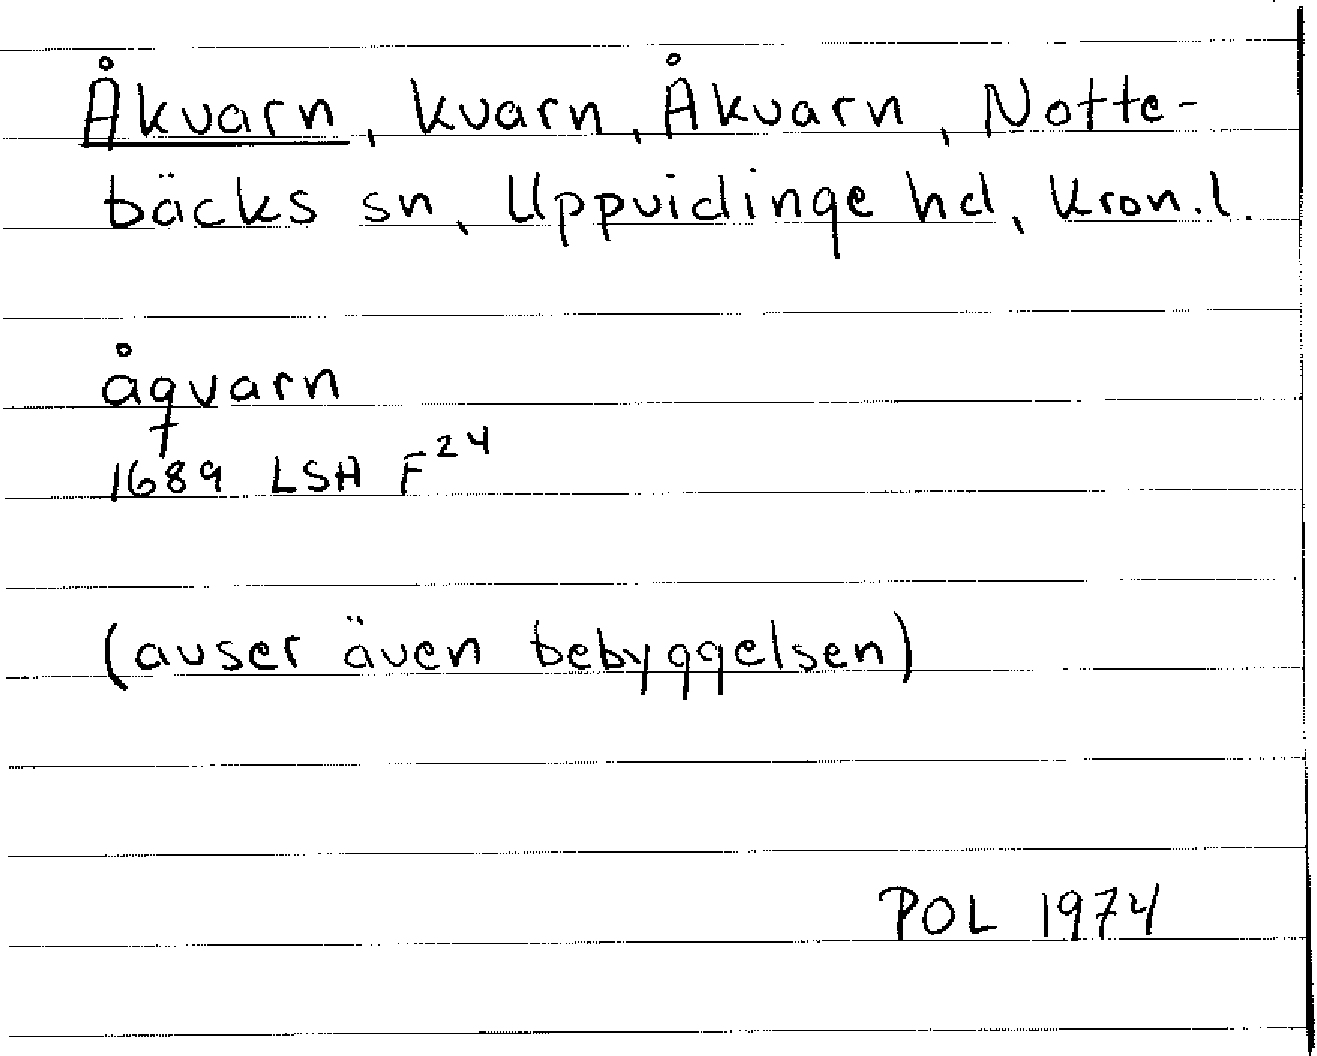 Åkvarn, kvarn, Åkvarn, Notte-
bäcks sn, Uppvidinge hd, Kron.l.
åqvarn
1689 LSA F24
(avser även bebyggelsen)
POL 1974